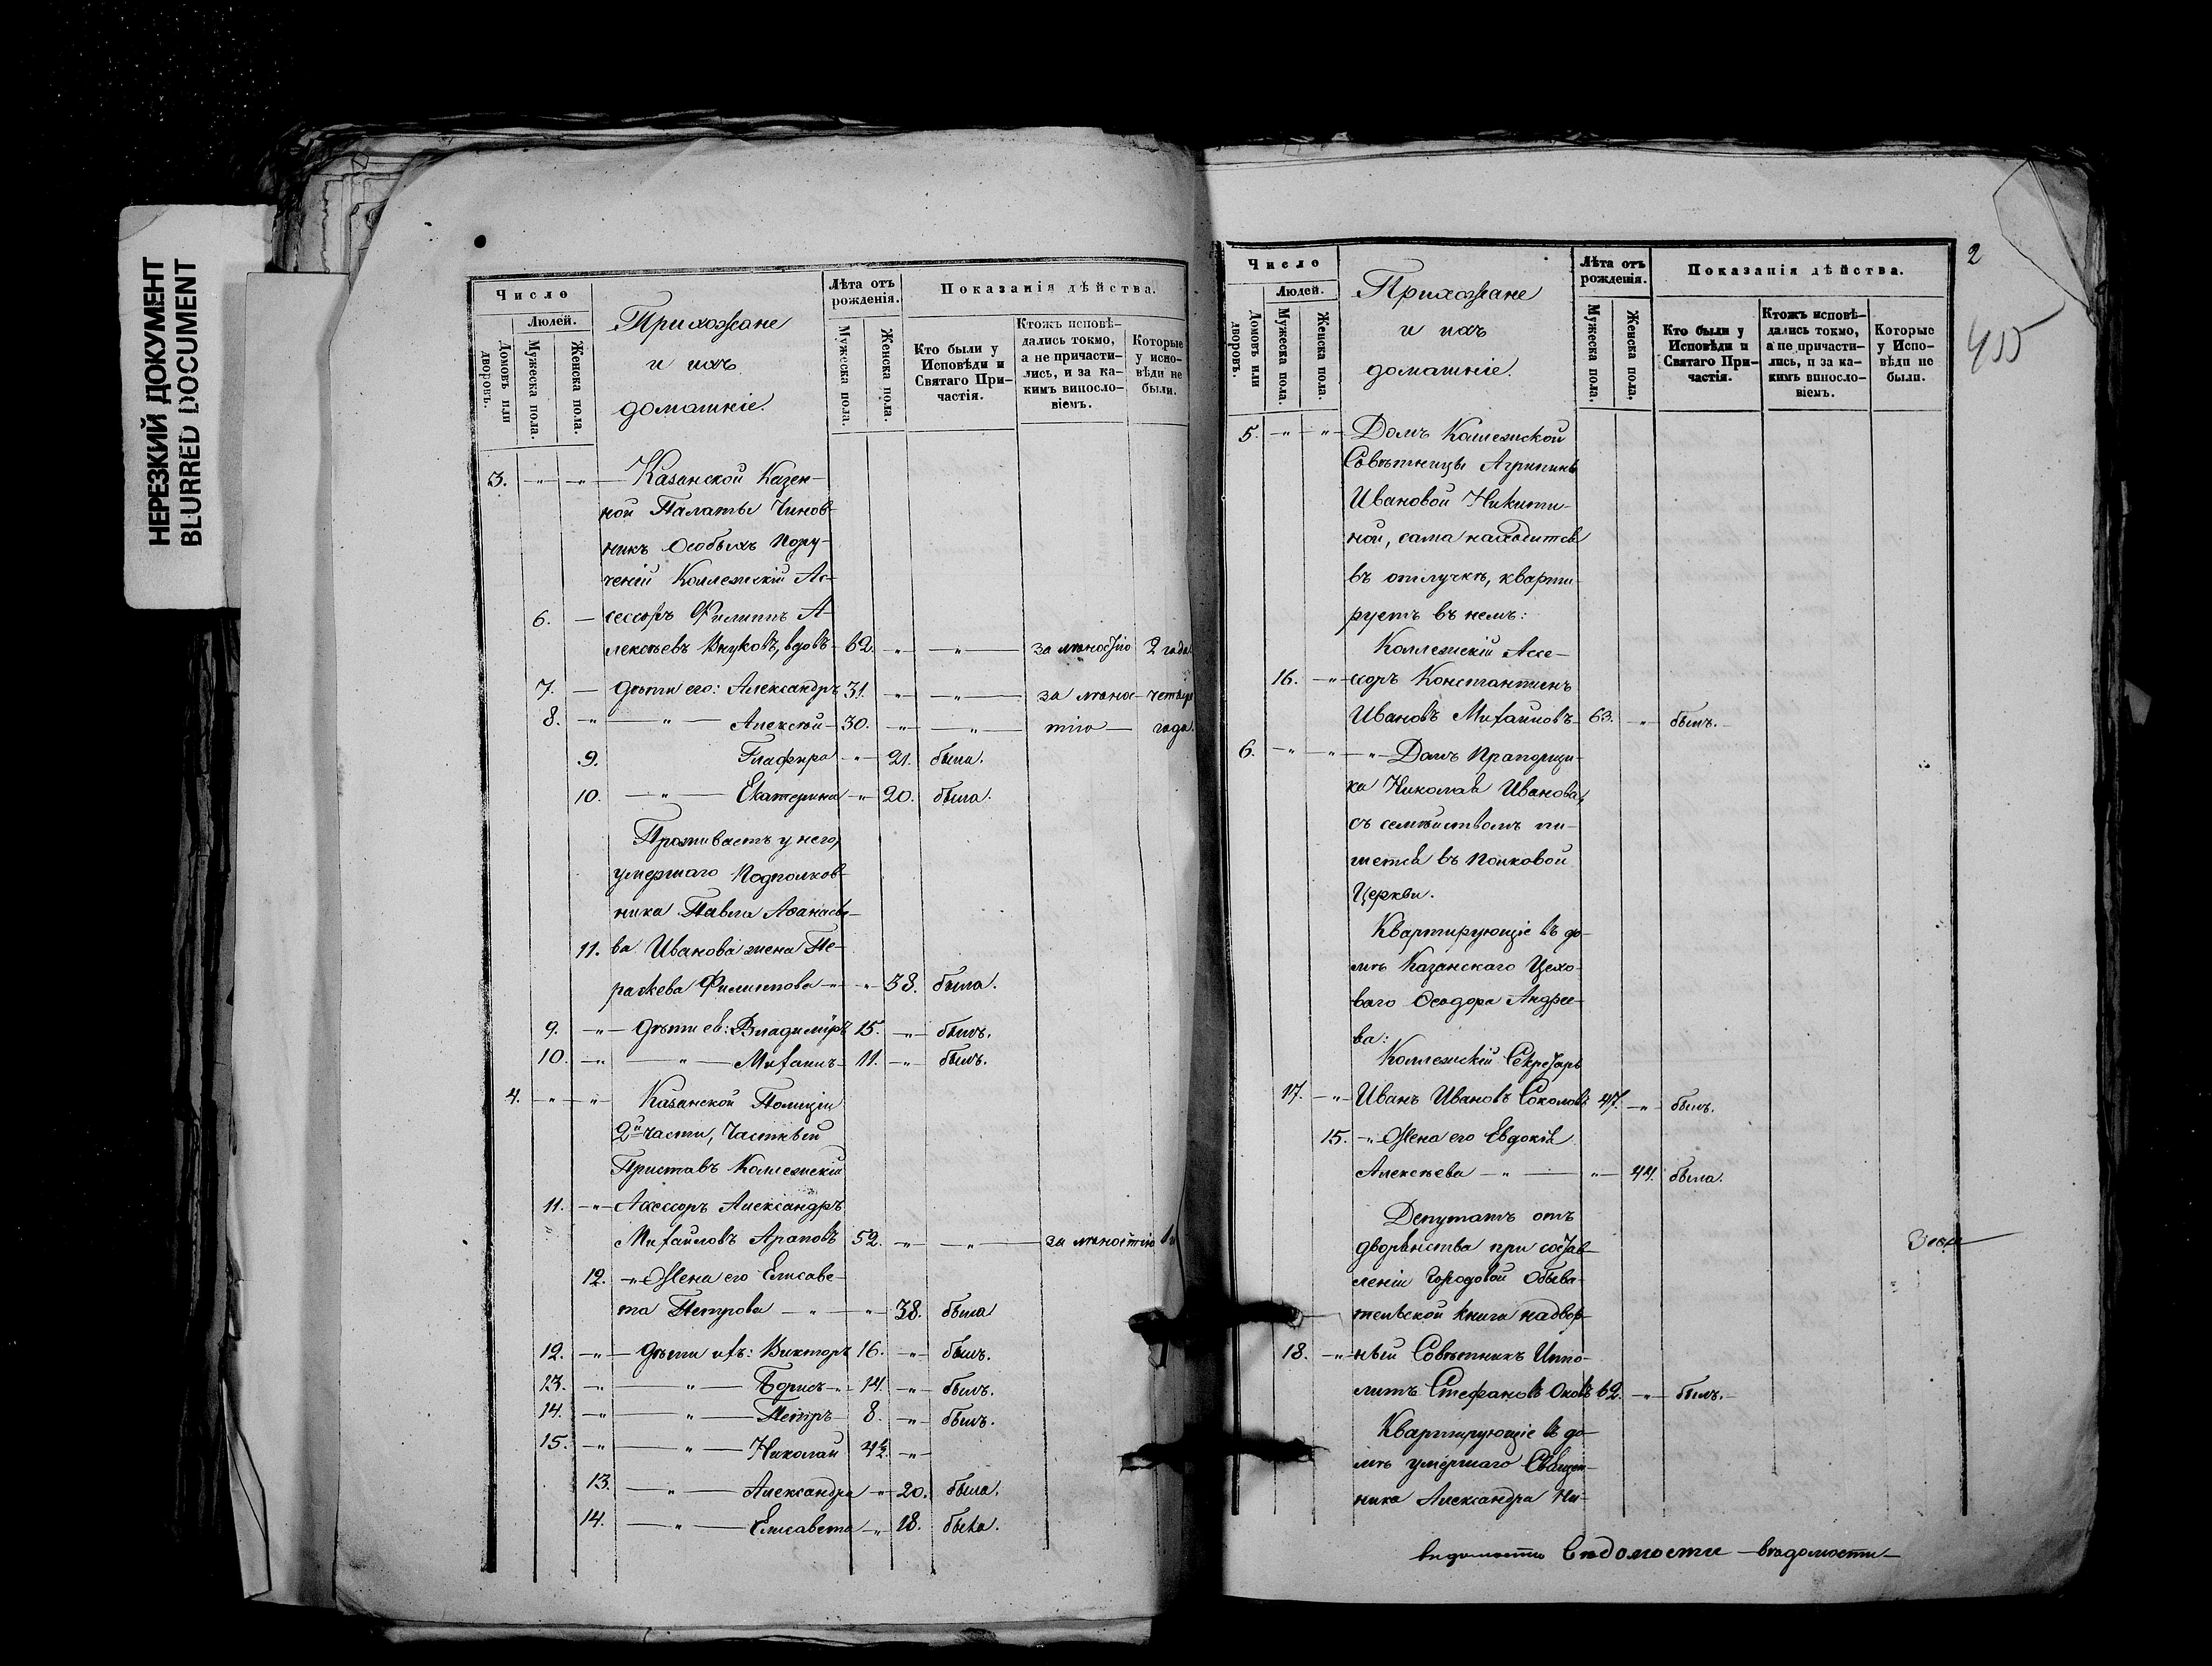 НЕРЕЗКИЙ ДОКУМЕНТ
BLURRED DOCUMENT
Число
Людей.
Домовъ или дворовъ.
Мужеска пола.
Женска пола.
Прихожане
и ихъ
домашніе.
Лѣта отъ рожденія.
Мужеска пола
Женска пола.
Показанія дѣйства.
Кто были у Исповѣди и Святаго Причастія.
Ктожъ исповѣ-
дались токмо,
а не причасти-
лись, и за ка-
кимъ винословіемъ.
Которые у исповѣди не были.
3. -„- -„- Казанской Казен-
ной Палаты Чинов-
никъ Особыхъ Пору-
ченій Коллежскій Ас-
6. — сессоръ Филиппъ А-
лексѣевъ Внуковъ, вдовъ 62. „ „ за лѣностію 2 года
7. — дѣти его: Александръ 31. „ „ за лѣнос- четыре
8. „ „ Алексѣй 30. „ „ тію года.
9. Глафира „ 21. была.
10. „ Екатерина „ 20. была.
Проживаетъ у него,
умершаго Подполков-
ника Павла Аѳанасье-
11. ва Иванова жена Пе-
Филиппова „ „ 38. была.
9. „ дѣти ея: Владиміръ 15. „ былъ.
10. „ „ Михаилъ 11. „ былъ.
4. „ „ Казанской Полиціи
2й части, Частный
Приставъ Коллежскій
11. „ Ассессоръ Александръ
Михайловъ Араповъ 52. „ „ за лѣностію
12. „ Жена его Елисаве-
та Петрова „ „ 38. была
12. „ дѣти ихъ: Викторъ 16. „ былъ.
13. „ „ Борисъ „ 14. „ былъ.
14. „ „ Петръ 8. „ былъ.
15. „ „ Николай 4½. „
13. „ Александра „ 20. была.
14. „ Елисавета „ 18. была.
2
415
Число
Людей.
Домовъ или дворовъ.
Мужеска пола.
Женска пола.
Прихожане
и ихъ
домашніе.
Лѣта отъ рожденія.
Мужеска пола,
Женска пола,
Показанія дѣйства.
Кто были у Исповѣди и Святаго Причастія.
Ктожъ исповѣ-
дались токмо,
а не причасти-
лись, и за ка-
кимъ винословіемъ.
Которые у Исповѣди не были.
5. „ „ Домъ Коллежской
Совѣтницы Агрипины
Ивановой Никити-
ной, сама находится
въ отлучкѣ, кварти-
руетъ въ немъ:
Коллежскій Ассе-
16. „ соръ Константинъ
Ивановъ Михайловъ 63. „ былъ.
6. „ „ „ Домъ Прапорщи-
ка Николая Иванова,
съ семѣйствомъ пи-
шется въ Полковой
Церкви.
Квартирующіе въ до-
мѣ Казанскаго Цехо-
ваго Ѳеодора Андрее-
ва:
Коллежскій Секретарь
17. „ Иванъ Ивановъ Соколовъ 47. „ былъ.
15. „ Жена его Евдокія
Алексѣева „ „ 44. была.
Депутатъ отъ
дворянства при состав-
леніи Городовой Обыва-
тельской книги надвор-
18. „ ный Совѣтникъ Иппо-
литъ Стефановъ 62. „ былъ.
Квартирующіе въ до-
мѣ умершаго Священ-
ника Александра Ни-
ведомости Ведомости ведомости